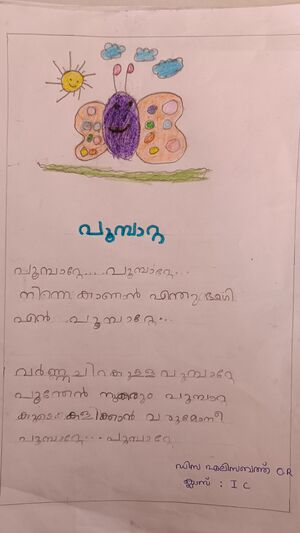 പൂമ്പാറ്റ
പൂമ്പാറ്റേ.... പൂമ്പാറ്റേ...
നിന്നെ കാണാൻ എന്തു ഭംഗി
എൻ പൂമ്പാറ്റേ..
വർണ്ണചിറകുള്ള പൂമ്പാറ്റേ
പൂന്തേൻ നുകരും പൂമ്പാറ്റ
കൂടെ കളിക്കാൻ വരുമോ നീ
പൂമ്പാറ്റേ... പൂമ്പാറ്റേ
ഡിസ എലിസബത്ത് O.R
ക്ലാസ് : I C